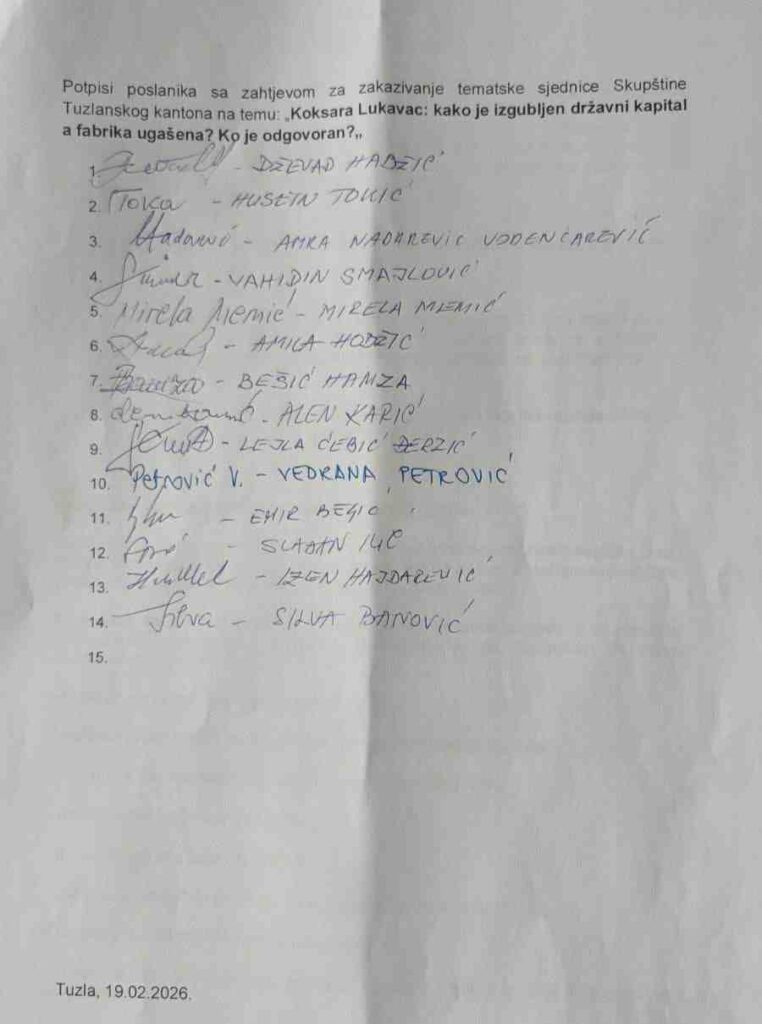 Potpisi poslanika sa zahtjevom za zakazivanje tematske sjednice Skupštine
Tuzlanskog kantona na temu: „Koksara Lukavac: kako je izgubljen državni kapital
a fabrika ugašena? Ko je odgovoran?„
1. - DŽEVAD HADŽIĆ
2. Tokić - HUSEIN TOKIĆ
3. - AMRA NADAREVIĆ VODENČAREVIĆ
4. - VAHIDIN SMAJLOVIĆ
5. Mirela Memić - MIRELA MEMIĆ
6. - AMILA HODŽIĆ
7. - BEŠIĆ HAMZA
8. - ALEN KARIĆ
9. - LEJLA ĆEBIĆ DERZIĆ
10. Petrović V. - VEDRANA PETROVIĆ
11. - EMIR
12. - SLAĐAN ILIĆ
13. - IZEN HAJDAREVIĆ
14. Silva - SILVA BANOVIĆ
15.
Tuzla, 19.02.2026.